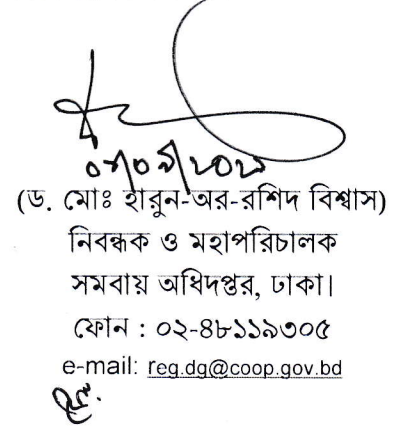 (ড. মোঃ হারুন-অর-রশিদ বিশ্বাস)
নিবন্ধক ও মহাপরিচালক
সমবায় অধিদপ্তর, ঢাকা।
ফোন : ০২-৪৮১১৯৩০৫
e-mail: reg.dg@coop.gov.bd